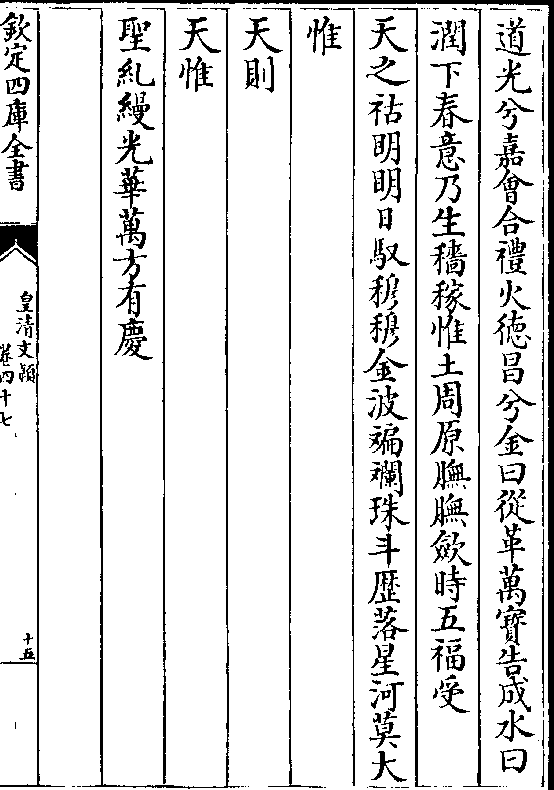 道光兮嘉會合禮火徳昌兮金曰從革萬寳告成水曰
潤下春意乃生穡稼惟土周原膴膴歛時五福受
天之祜明明日馭穆穆金波斒斕珠斗歴落星河莫大
惟
天則
天惟
聖糺縵光華萬方有慶
欽定四庫全書
皇清文頴
卷四十七
十五